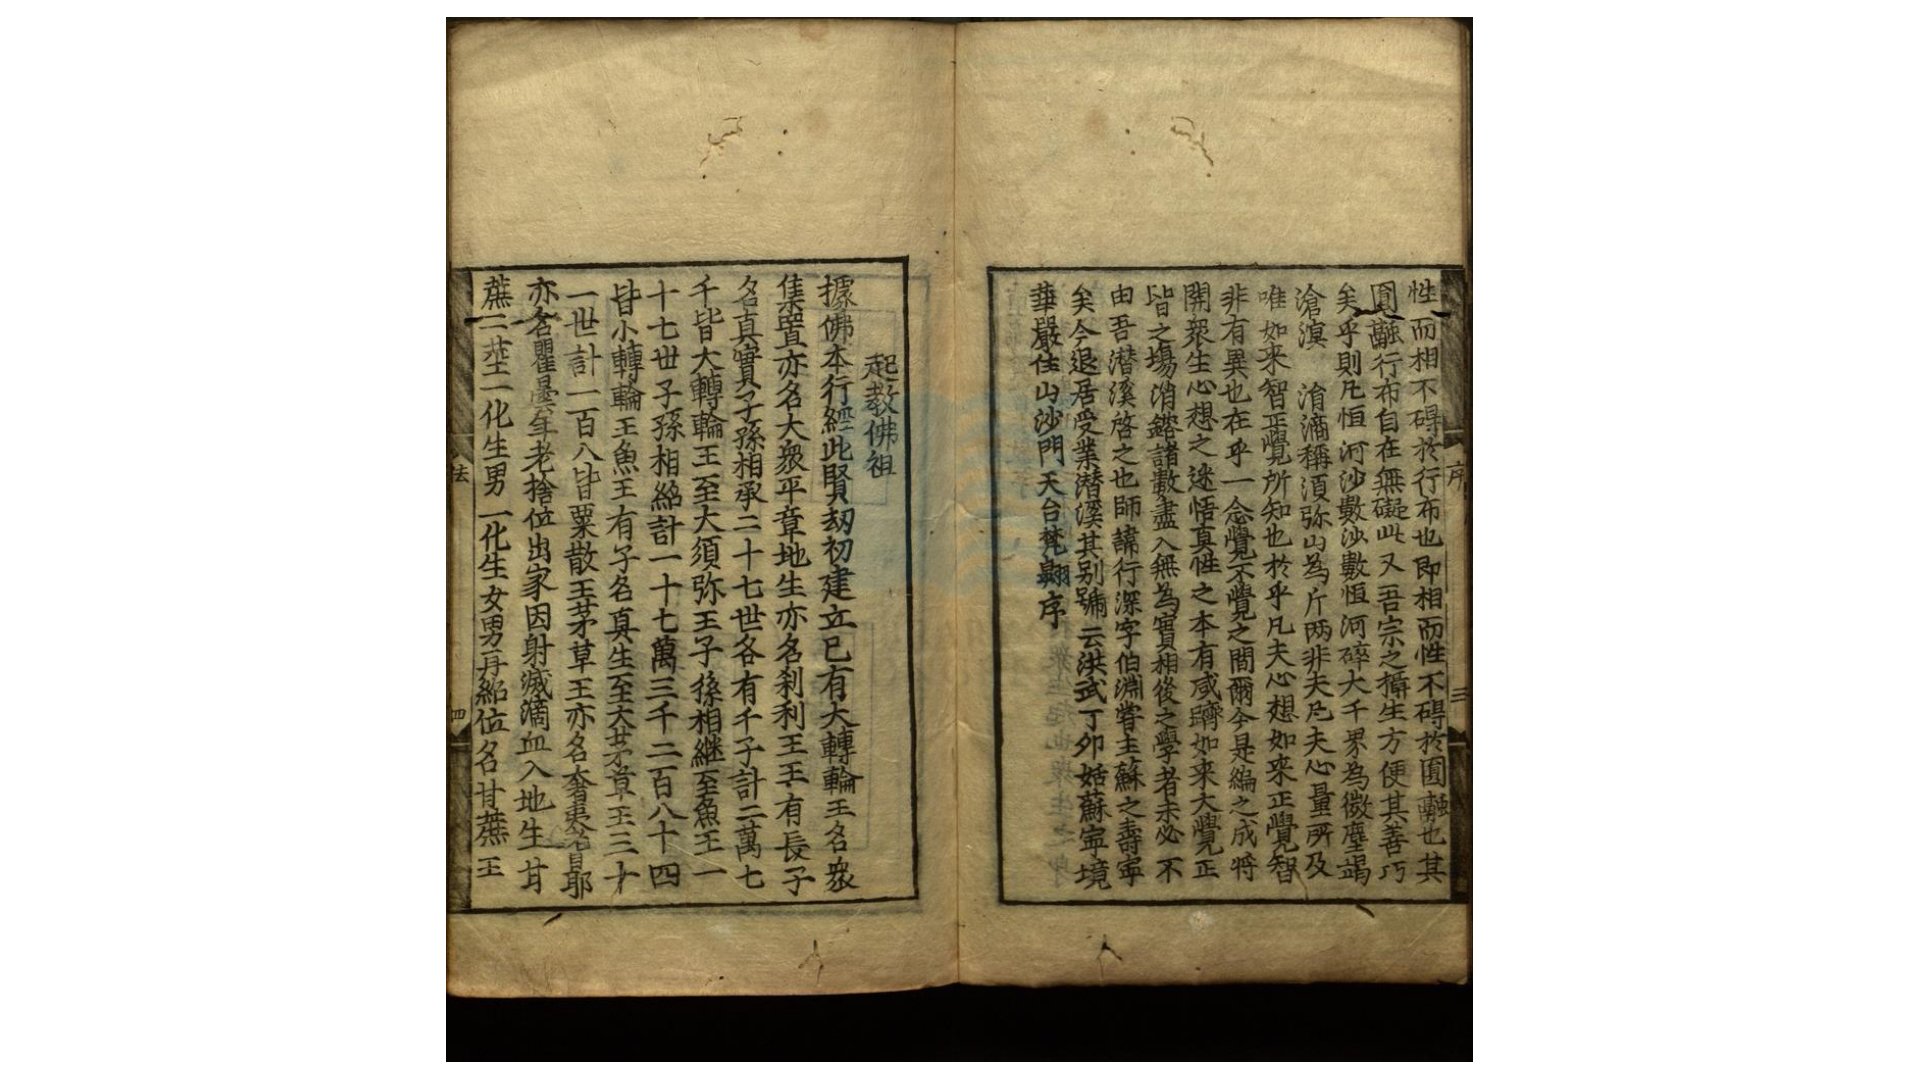 性而相不碍於行布也即相而性不碍於圎融也其
圎融行布自在無礙此又吾宗之攝生方便其善巧
矣乎則凡恒河沙數沙數恒河碎大千界為微塵竭
滄溟 涓滴稱湏弥山為斤两非夫凡夫心量所及
唯如来智正覺所知也於乎凡夫心想如来正覺智
非有異也在乎一念覺不覺之間爾今是编之成将
開衆生心想之迷悟真性之本有咸躋如来大覺正
皆之塲消鎔諸數盡入無為實相後之學者未必不
由吾潜溪啓之也師諱行深字伯淵甞主蘇之壽寧
矣今退居受業潜溪其别號云洪武丁夘姑蘇寜境
華嚴住山沙門天台梵翶序
序
三
起教佛祖
據佛本行經此賢刼初建立已有大轉輪王名衆
集置亦名大衆平章地生亦名刹利王王有長子
名真實子孫相承二十七世各有千子計二萬七
千皆大轉輪王至大須弥王子孫相継至魚王一
十七世子孫相紹計一十七萬三千二百八十四
皆小轉輪王魚王有子名真生至大茅草王三十
一世計一百八皆粟散王茅草王亦名奢夷
亦名瞿曇年老捨位出家因射滅滴血入地生甘
蔗二莖一化生男一化生女男再紹位名甘蔗王
法
四